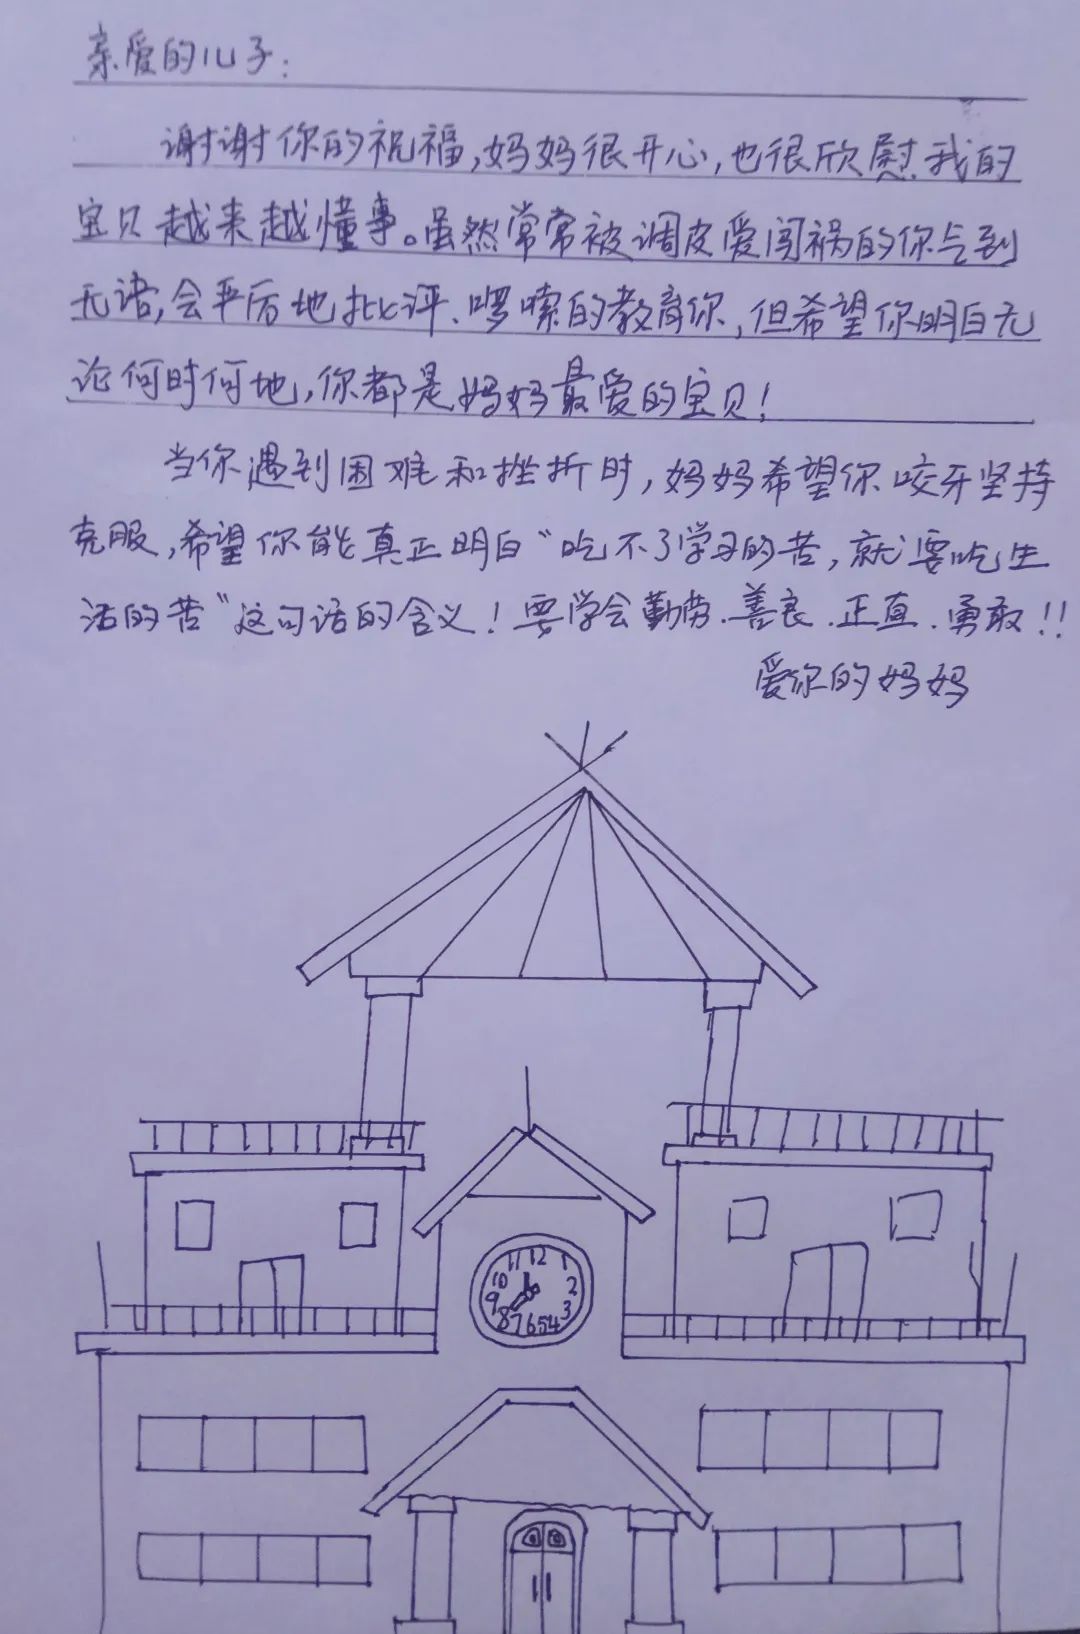 亲爱的儿子：
谢谢你的祝福，妈妈很开心，也很欣慰我的
宝贝越来越懂事。虽然常常被调皮爱闯祸的你气到
无语，会严厉地批评、啰嗦的教育你，但希望你明白无
论何时何地，你都是妈妈最爱的宝贝！
当你遇到困难和挫折时，妈妈希望你咬牙坚持
克服，希望你能真正明白“吃不了学习的苦，就要吃生
活的苦”这句话的含义！要学会勤劳、善良、正直、勇敢！！
爱你的妈妈
11 12 1
10 2
9 3
8 7 6 5 4